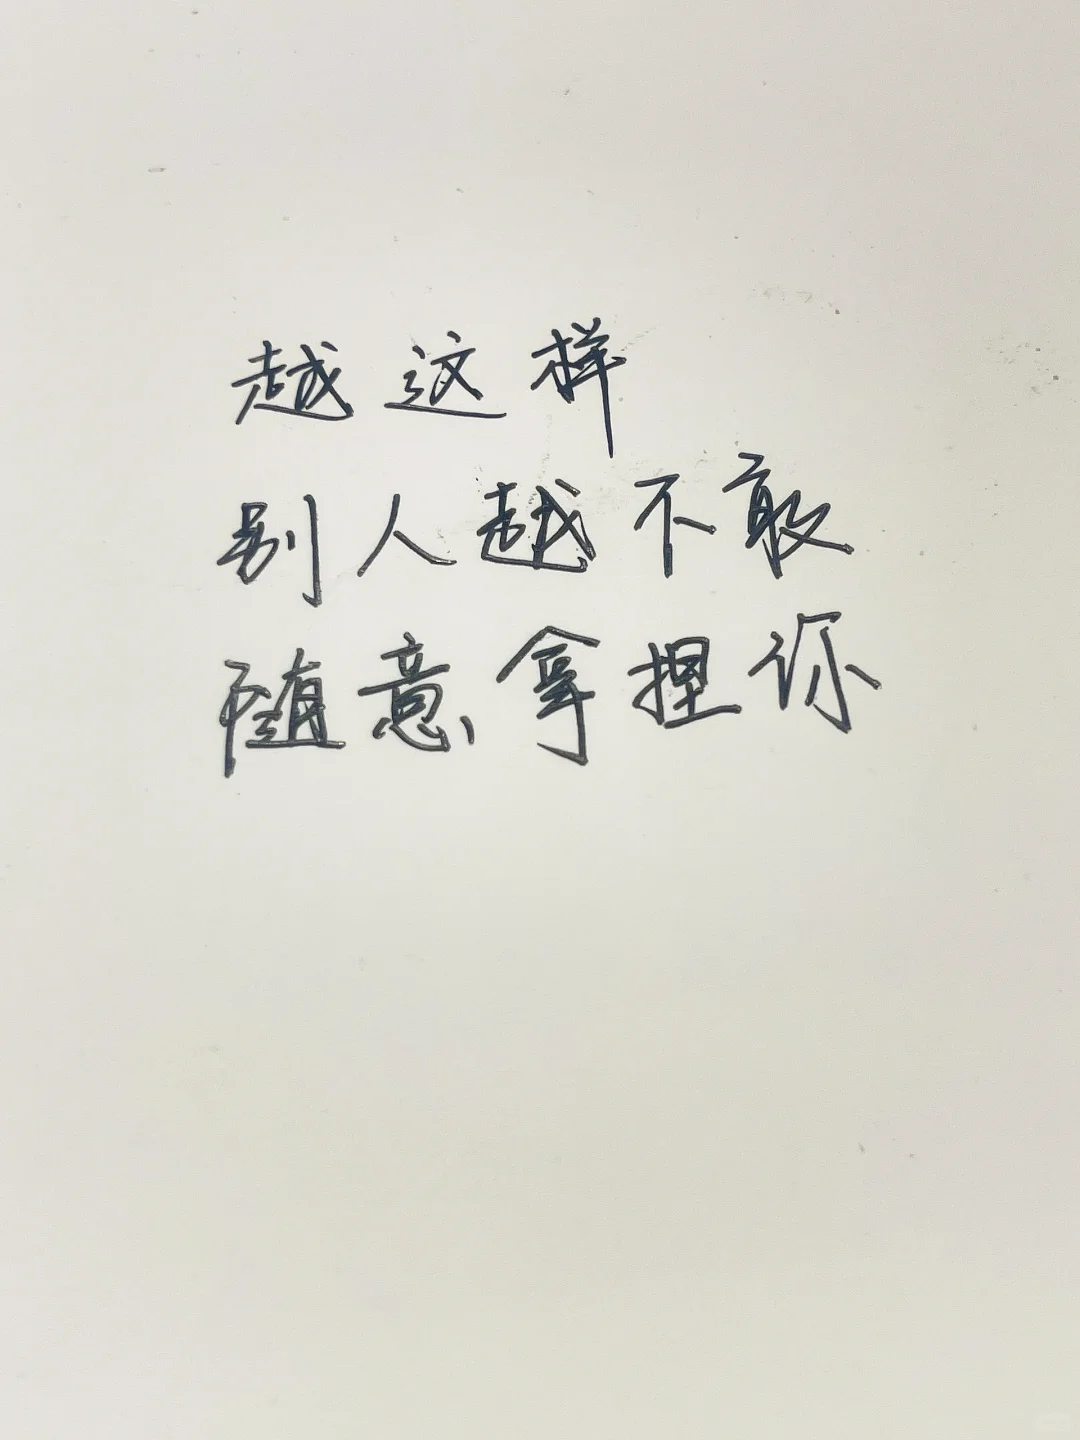 越这样
别人越不敢
随意拿捏你